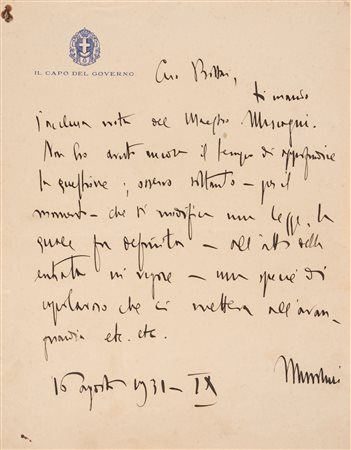 IL CAPO DEL GOVERNO
Caro Bottai,
ti mando
l'acclusa nota del Maestro Mascagni.
Non ho avuto ancora il tempo di approfondire
la questione; osservo soltanto - per il
momento - che si modifica una legge, la
quale fu definita - all'atto della
entrata in vigore - una specie di
capolavoro che ci metteva all'avan-
guardia etc. etc.
16 agosto 1931 - IX
Mussolini